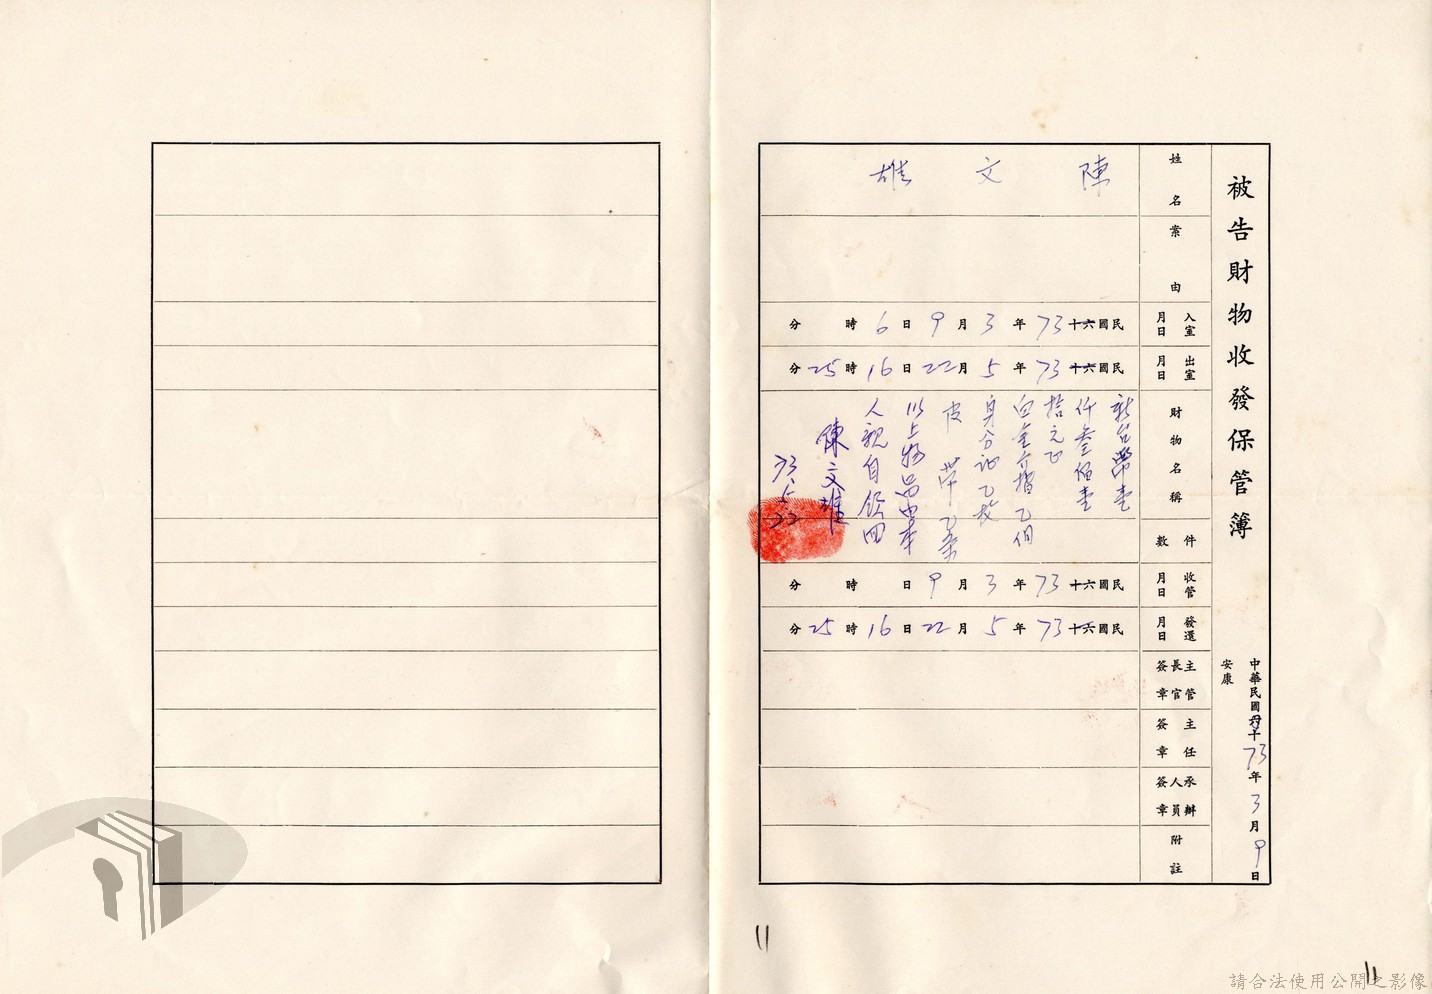 被告財物收發保管簿
中華民國六十73年3月9日
安康
姓名
陳文雄
案由
入室月日
民國六十73年3月9日6時 分
出室月日
民國六十73年5月22日16時25分
財物名稱
件數
新台幣壹
仟叁佰壹
拾元正
白金介指乙個
身分証乙枚
皮帶乙条
以上物品由本
人親自領回
陳文雄
73.5.22
收管月日
民國六十73年3月9日 時 分
發還月日
民國六十73年5月22日16時25分
主管長官簽章
主任簽章
承辦人員簽章
附註
11
11
請合法使用公開之影像